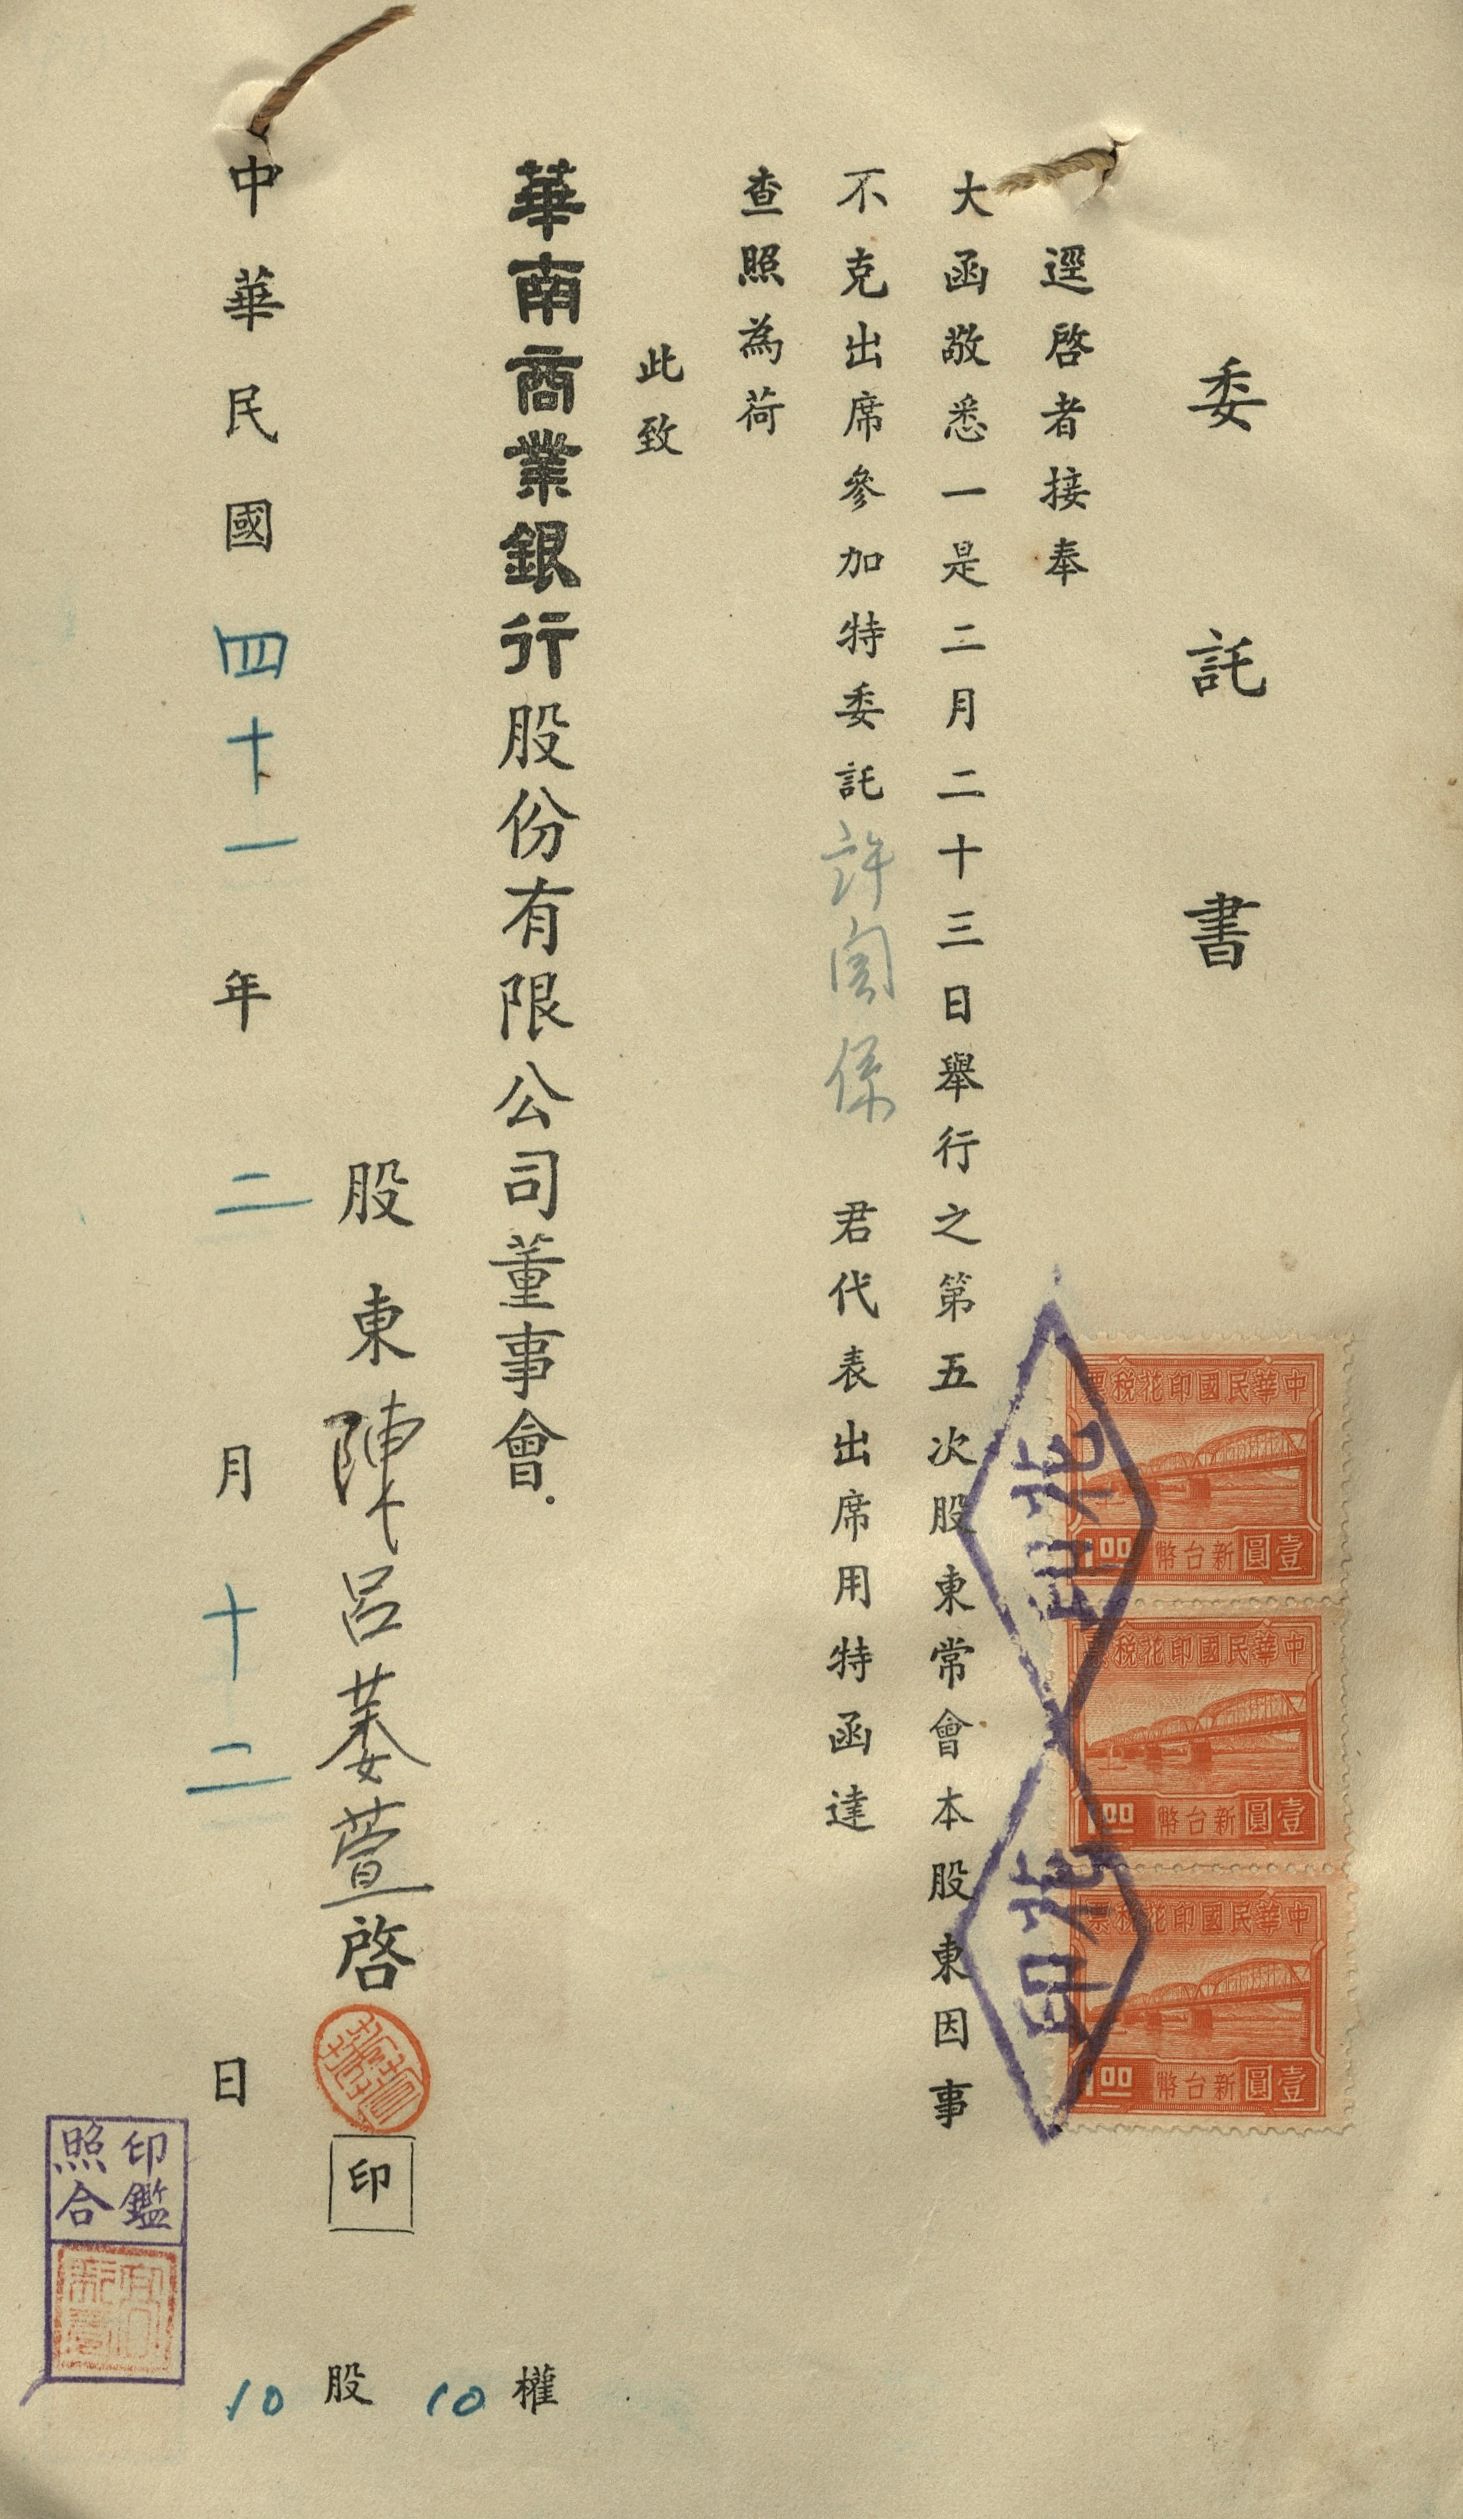 委託書
逕啓者接奉
大函敬悉一是二月二十三日舉行之第五次股東常會本股東因事
不克出席參加特委託許 君代表出席用特函達
查照為荷
此致
華南商業銀行股份有限公司董事會.
股東陳呂萎萱啓
印
中華民國四十一年二月十二日
10股 10權
中華民國印花稅票
1.00 新台幣 壹圓
中華民國印花稅票
1.00 新台幣 壹圓
中華民國印花稅票
1.00 新台幣 壹圓
印花
印花
印鑑
照合